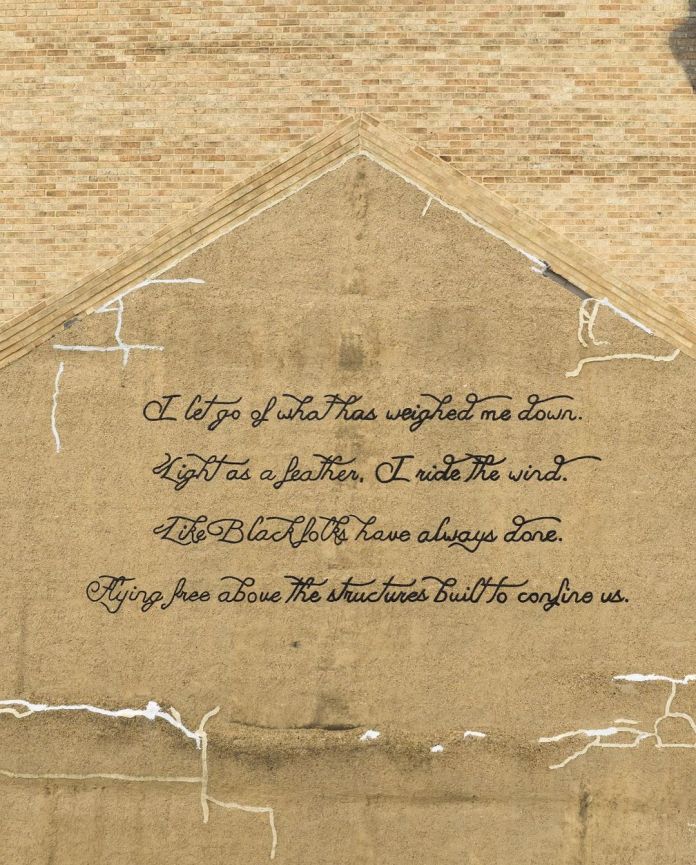 I let go of what has weighed me down.
Light as a feather, I ride the wind.
Like Black folks have always done.
Flying free above the structures built to confine us.